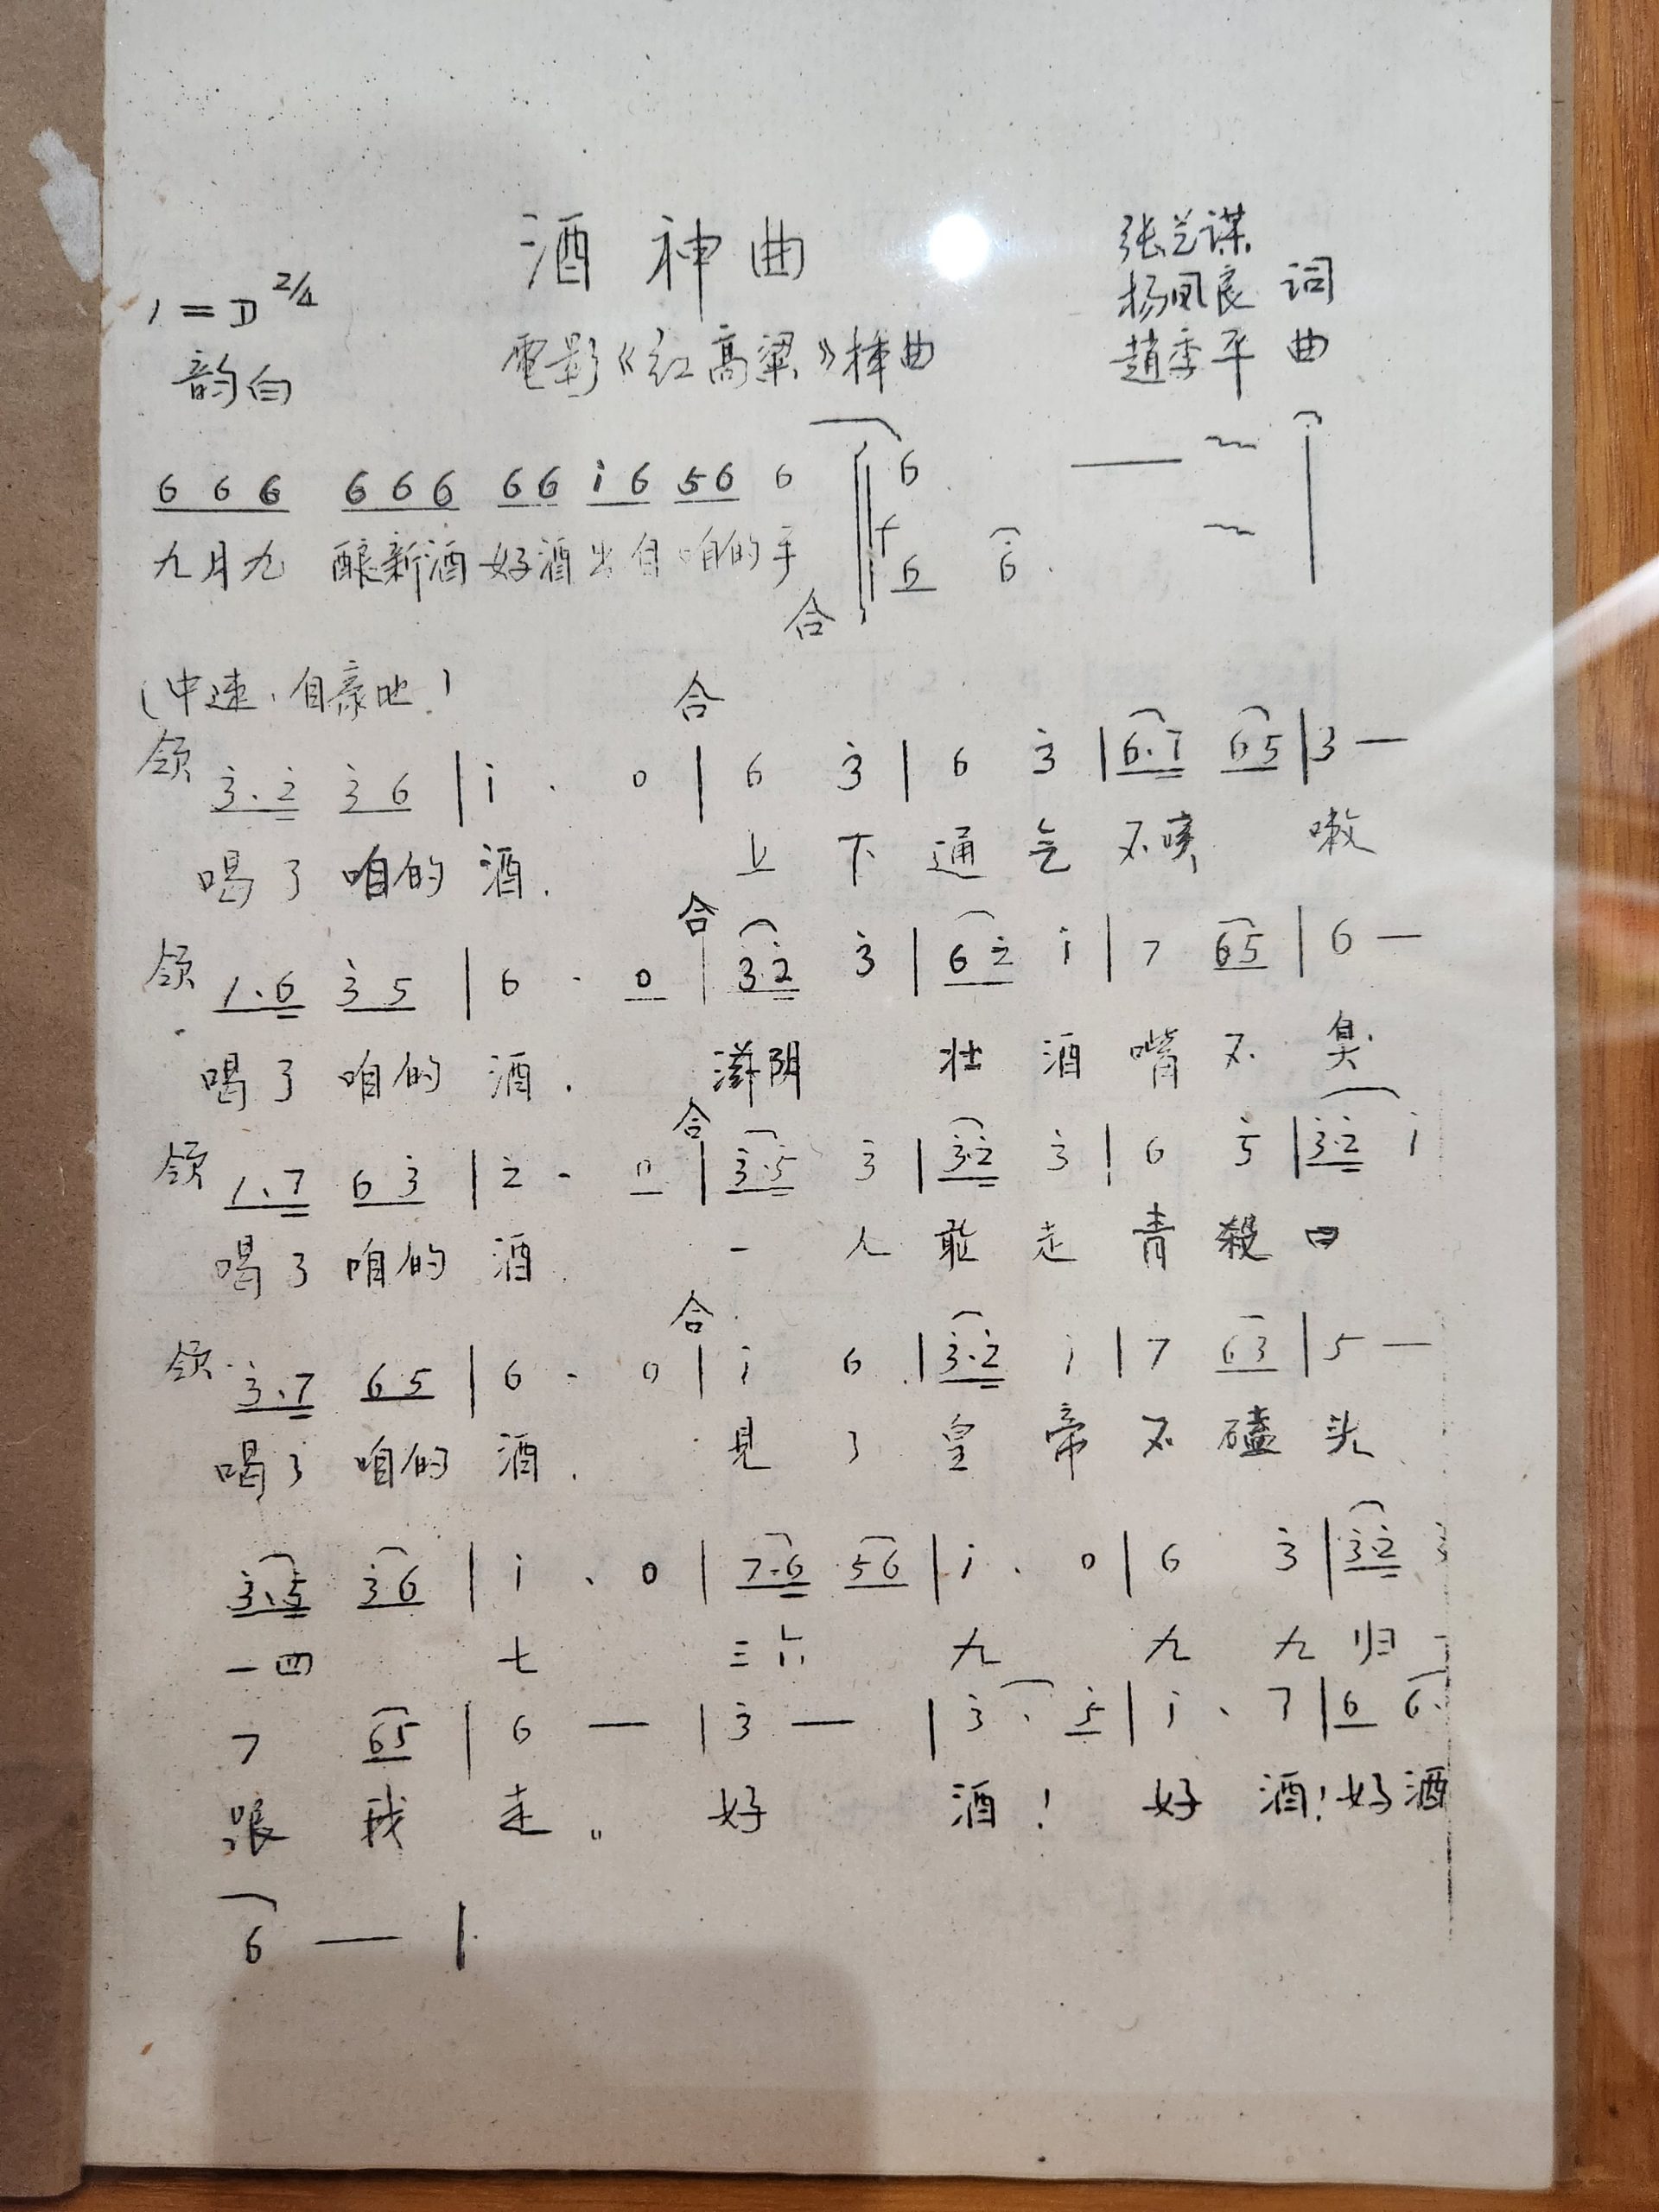 酒神曲
张艺谋
杨凤良 词
1=D 2/4
電影《红高粱》插曲
趙季平 曲
韵白
6 6 6 6 6 6 6 6 i 6 5 6 6 6 —
九月九 酿新酒 好酒出自咱的手 サ 6 6
合
(中速、自豪地)
合
领 3.2 3 6 | i . 0 | 6 3 | 6 3 | 6.7 6 5 | 3 —
喝了咱的酒. 上下通气不咳嗽
合
领 1.6 3 5 | 6 . 0 | 3.2 3 | 6 2 i | 7 6 5 | 6 —
喝了咱的酒. 滋阴壮酒嘴不臭
合
领 1.7 6 3 | 2 . 0 | 3.5 3 | 3.2 3 | 6 5 | 3.2 i
喝了咱的酒. 一人敢走青殺口
合
领 3.7 6 5 | 6 . 0 | i 6 | 3.2 i | 7 6 3 | 5 —
喝了咱的酒. 見了皇帝不磕头
3.5 3 6 | i . 0 | 7.6 5 6 | i . 0 | 6 3 | 3.2 3
一四七 三六九 九九归一
7 6 5 | 6 — | 3 — | 3 . 5 | i . 7 | 6 6.
跟我走。好酒！好酒！好酒
6 — |